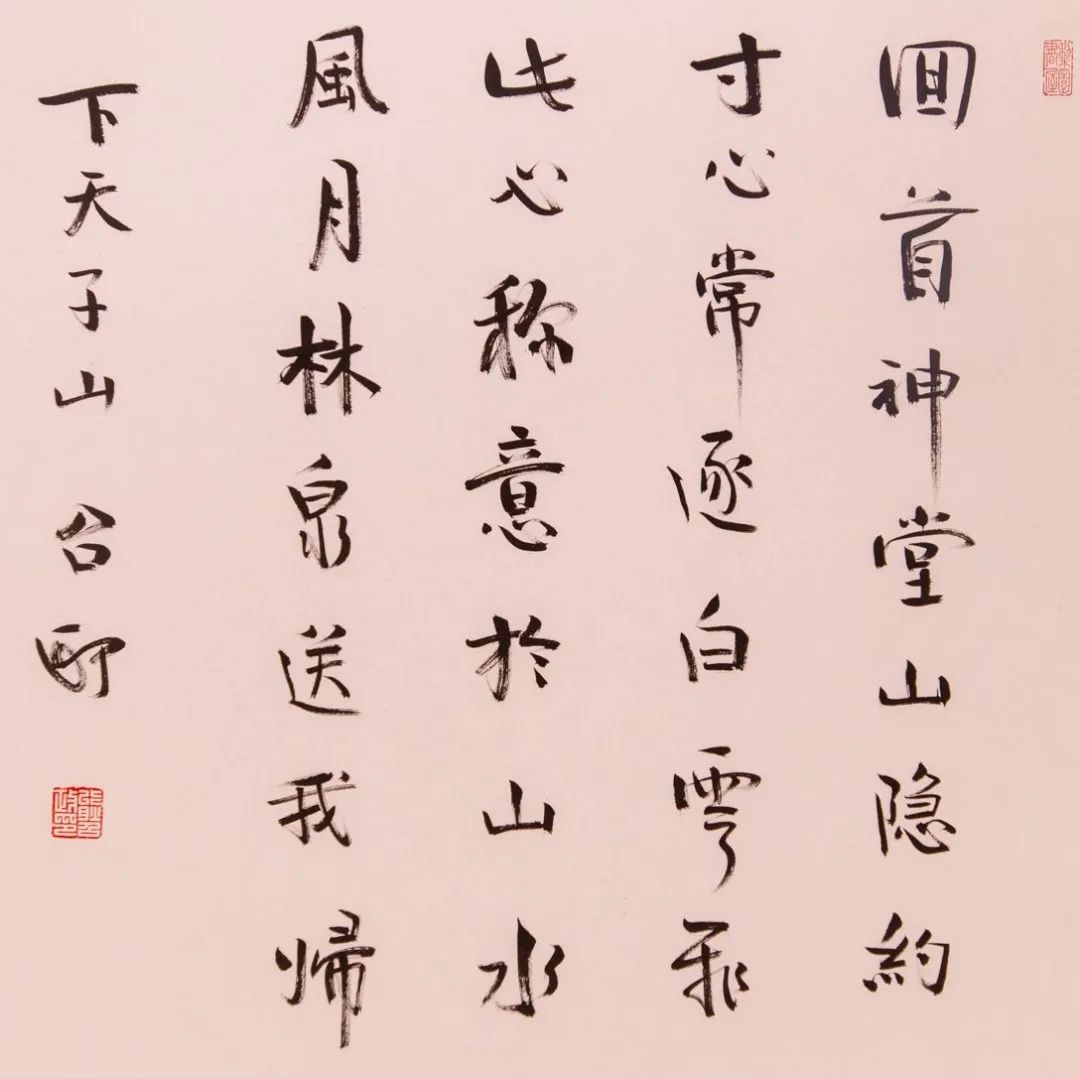 回首神堂山隐約
寸心常逐白雲飛
此心称意於山水
風月林泉送我帰
下天子山 台